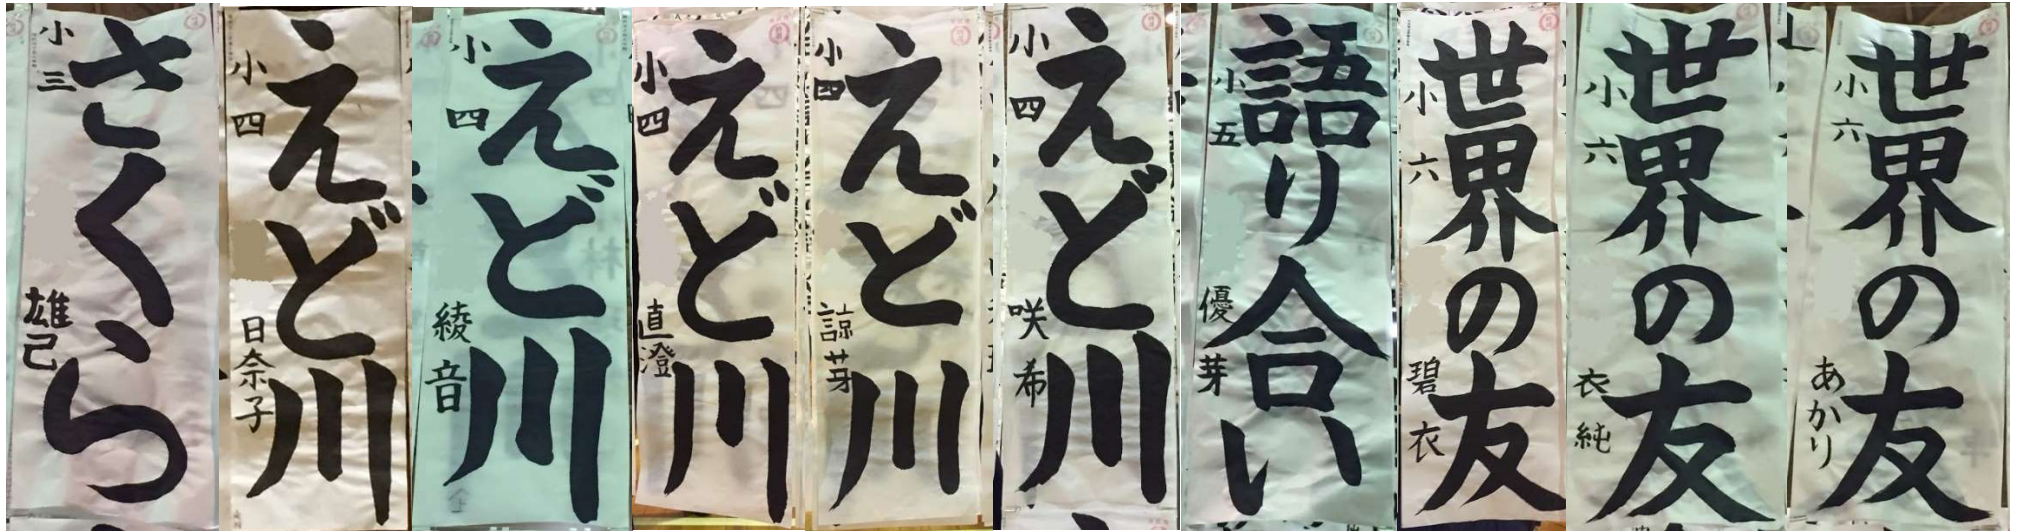 さくら
小三
雄己
えど川
小四
日奈子
えど川
小四
綾音
えど川
小四
直澄
えど川
小四
諒芽
えど川
小四
咲希
語り合い
小五
優芽
世界の友
小六
碧衣
世界の友
小六
衣純
世界の友
小六
あかり